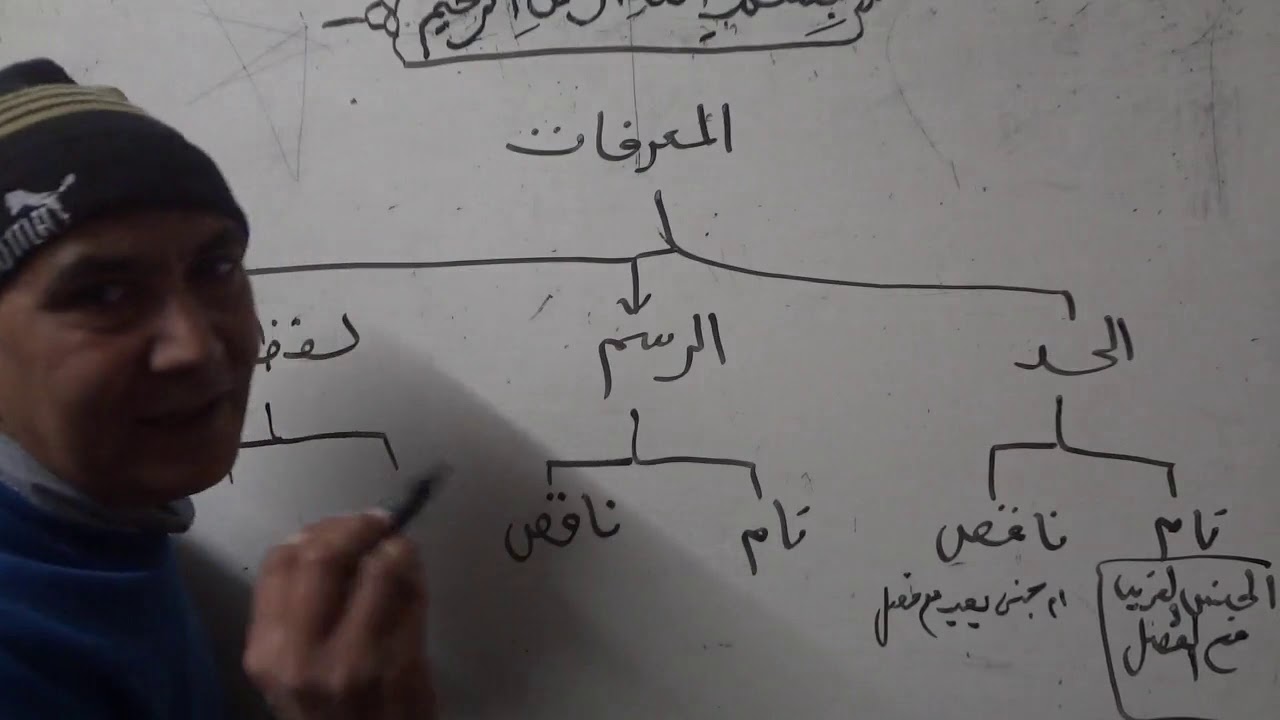 بسم الله الرحمن الرحيم
المعرفات
الحد
الرسم
تام
ناقص
تام
ناقص
الجنس القريب
مع الفصل
جنس بعيد مع فصل
PUMA